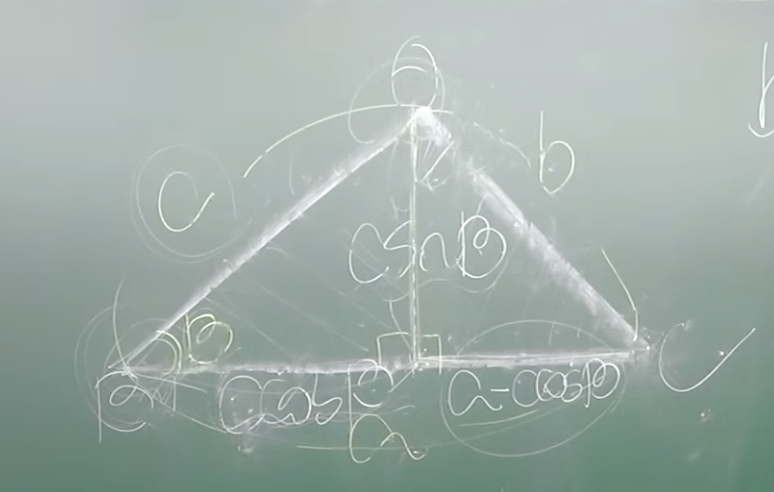 b
c
c sin B
B
B
c cos B
a - c cos B
C
a